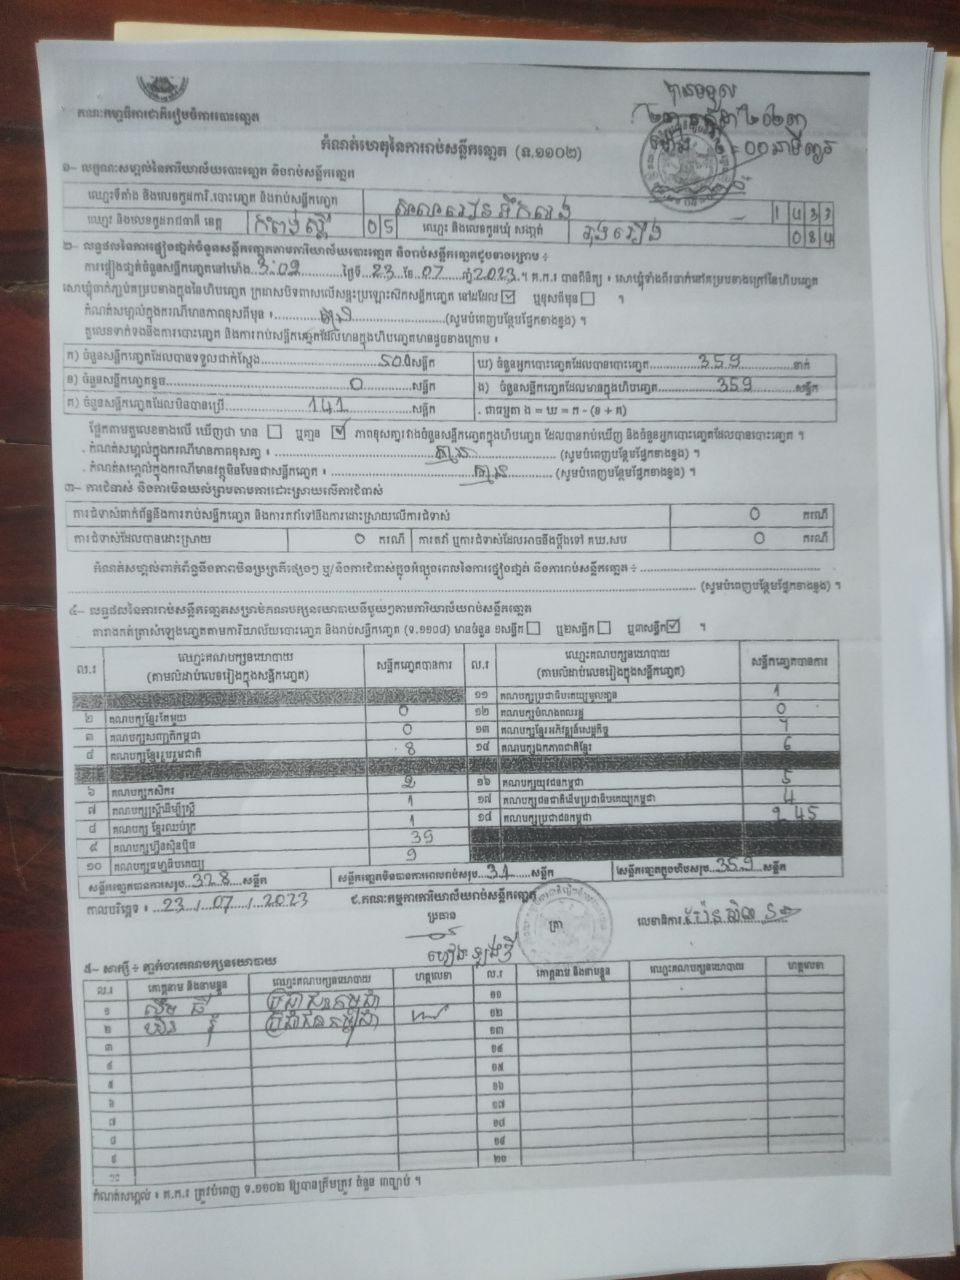 គណៈកម្មាធិការជាតិរៀបចំការបោះឆ្នោត
បានទទួល
កំណត់ហេតុនៃការរាប់សន្លឹកឆ្នោត (ទ.១១០២)
១- លក្ខណៈសម្គាល់នៃការិយាល័យបោះឆ្នោត និងរាប់សន្លឹកឆ្នោត
ឈ្មោះទីតាំង និងលេខកូដការិ.បោះឆ្នោត និងរាប់សន្លឹកឆ្នោត
ឈ្មោះ និងលេខកូដរាជធានី ខេត្ត កំពង់ស្ពឺ 05 ឈ្មោះ និងលេខកូដឃុំ សង្កាត់ 084
២- លទ្ធផលនៃការផ្ទៀងផ្ទាត់ចំនួនសន្លឹកឆ្នោតតាមការិយាល័យបោះឆ្នោត និងរាប់សន្លឹកឆ្នោតដូចខាងក្រោម ៖
ការផ្ទៀងផ្ទាត់ចំនួនសន្លឹកឆ្នោតនៅម៉ោង 3:02 ថ្ងៃទី 23 ខែ 07 ឆ្នាំ 2023 ។ គ.ក.រ បានពិនិត្យ ៖ សោឃ្លុំទាំងពីរចាក់នៅគម្របខាងក្រៅនៃហិបឆ្នោត
សោឃ្លុំចាក់ភ្ជាប់គម្របខាងក្នុងនៃហិបឆ្នោត ក្រដាសបិទពាសលើសន្ទះប្រឡោះស៊កសន្លឹកឆ្នោត នៅដដែល ☑ ឬខុសពីមុន ☐ ។
កំណត់សម្គាល់ក្នុងករណីមានភាពខុសពីមុន ៖ (សូមបំពេញបន្ថែមផ្នែកខាងខ្នង) ។
តួលេខទាក់ទងនឹងការបោះឆ្នោត និងការរាប់សន្លឹកឆ្នោតដែលមានក្នុងហិបឆ្នោតមានដូចខាងក្រោម ៖
ក) ចំនួនសន្លឹកឆ្នោតដែលបានទទួលជាក់ស្តែង 500 សន្លឹក ឃ) ចំនួនអ្នកបោះឆ្នោតដែលបានបោះឆ្នោត 359 នាក់
ខ) ចំនួនសន្លឹកឆ្នោតខូច 0 សន្លឹក ង) ចំនួនសន្លឹកឆ្នោតដែលមានក្នុងហិបឆ្នោត 359 សន្លឹក
គ) ចំនួនសន្លឹកឆ្នោតដែលមិនបានប្រើ 141 សន្លឹក . ជាធម្មតា ង = ឃ = ក - (ខ + គ)
ផ្អែកតាមតួលេខខាងលើ ឃើញថា មាន ☐ ឬគ្មាន ☑ ភាពខុសគ្នារវាងចំនួនសន្លឹកឆ្នោតក្នុងហិបឆ្នោត ដែលបានរាប់ឃើញ និងចំនួនអ្នកបោះឆ្នោតដែលបានបោះឆ្នោត ។
. កំណត់សម្គាល់ក្នុងករណីមានភាពខុសគ្នា ៖ គ្មាន (សូមបំពេញបន្ថែមផ្នែកខាងខ្នង) ។
. កំណត់សម្គាល់ក្នុងករណីមានវត្ថុមិនមែនជាសន្លឹកឆ្នោត ៖ គ្មាន (សូមបំពេញបន្ថែមផ្នែកខាងខ្នង) ។
៣- ការជំទាស់ និងការមិនយល់ព្រមតាមការដោះស្រាយលើការជំទាស់
ការជំទាស់ពាក់ព័ន្ធនឹងការរាប់សន្លឹកឆ្នោត និងការតវ៉ាទៅនឹងការដោះស្រាយលើការជំទាស់ 0 ករណី
ការជំទាស់ដែលបានដោះស្រាយ 0 ករណី ការតវ៉ា ឬការជំទាស់ដែលអាចនឹងប្តឹងទៅ គឃ.សប 0 ករណី
(សូមបំពេញបន្ថែមផ្នែកខាងខ្នង) ។
៤- លទ្ធផលនៃការរាប់សន្លឹកឆ្នោតសម្រាប់គណបក្សនយោបាយនីមួយៗតាមការិយាល័យរាប់សន្លឹកឆ្នោត
តារាងកត់ត្រាសំឡេងឆ្នោតតាមការិយាល័យបោះឆ្នោត និងរាប់សន្លឹកឆ្នោត (ទ.១១០៨) មានចំនួន ១សន្លឹក ☐ ឬ២សន្លឹក ☐ ឬ៣សន្លឹក ☑ ។
ល.រ ឈ្មោះគណបក្សនយោបាយ (តាមលំដាប់លេខរៀងក្នុងសន្លឹកឆ្នោត) សន្លឹកឆ្នោតបានការ ល.រ ឈ្មោះគណបក្សនយោបាយ (តាមលំដាប់លេខរៀងក្នុងសន្លឹកឆ្នោត) សន្លឹកឆ្នោតបានការ
១១ គណបក្សប្រជាធិបតេយ្យមូលដ្ឋាន 1
២ គណបក្សខ្មែរតែមួយ 0 ១២ គណបក្សបំណងពលរដ្ឋ 0
៣ គណបក្សសញ្ជាតិកម្ពុជា 0 ១៣ គណបក្សខ្មែរអភិវឌ្ឍន៍សេដ្ឋកិច្ច 7
៤ គណបក្សខ្មែររួបរួមជាតិ 8 ១៤ គណបក្សឯកភាពជាតិខ្មែរ 6
៦ គណបក្សកសិករ 2 ១៦ គណបក្សយុវជនកម្ពុជា 5
៧ គណបក្សស្ត្រីដើម្បីស្ត្រី 1 ១៧ គណបក្សជនជាតិដើមប្រជាធិបតេយ្យកម្ពុជា 4
៨ គណបក្ស ខ្មែរឈប់ក្រ 1 ១៨ គណបក្សប្រជាជនកម្ពុជា 245
៩ គណបក្សហ្វ៊ុនស៊ិនប៉ិច 39
១០ គណបក្សធម្មាធិបតេយ្យ 9
សន្លឹកឆ្នោតបានការសរុប 328 សន្លឹក សន្លឹកឆ្នោតមិនបានការពេលរាប់សរុប 31 សន្លឹក សន្លឹកឆ្នោតក្នុងហិបសរុប 359 សន្លឹក
កាលបរិច្ឆេទ ៖ 23 / 07 / 2023 ជ.គណៈកម្មការការិយាល័យរាប់សន្លឹកឆ្នោត
ប្រធាន ត្រា លេខាធិការ
៥- សាក្សី ៖ ភ្នាក់ងារគណបក្សនយោបាយ
ល.រ គោត្តនាម និងនាមខ្លួន ឈ្មោះគណបក្សនយោបាយ ហត្ថលេខា ល.រ គោត្តនាម និងនាមខ្លួន ឈ្មោះគណបក្សនយោបាយ ហត្ថលេខា
១ ប្រជាជនកម្ពុជា ១១
២ ប្រជាជនកម្ពុជា ១២
៣ ១៣
៤ ១៤
៥ ១៥
៦ ១៦
៧ ១៧
៨ ១៨
៩ ១៩
១០ ២០
កំណត់សម្គាល់ ៖ គ.ក.រ ត្រូវបំពេញ ទ.១១០២ ឱ្យបានត្រឹមត្រូវ ចំនួន ៣ច្បាប់ ។